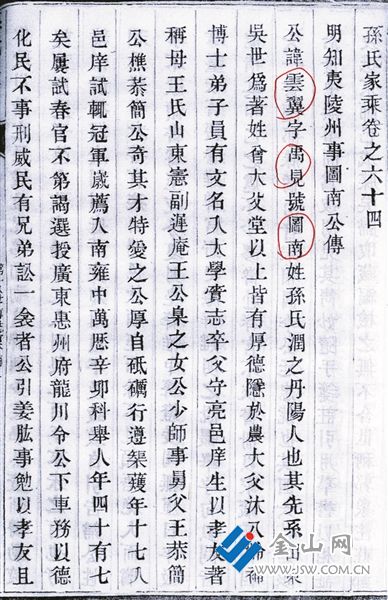 孫氏家乘卷之六十四
明知夷陵州事圖南公傳
公諱雲翼字禹見號圖南姓孫氏潤之丹陽人也其先系
吳世爲著姓曾大父堂以上皆有厚德隱於農大父沐入補
博士弟子員有文名入太學賫志卒父守亮邑庠生以孝友著
稱母王氏山東憲副遲庵王公臬之女公少師事舅父王恭簡
公樵恭簡公奇其才特愛之公厚自砥礪行遵榘矱年十七入
邑庠試輒冠軍歲薦入南雍中萬歷辛卯科舉人年四十有七
矣屢試春官不第謁選授廣東惠州府龍川令公下車務以德
化民不事刑威民有兄弟訟一衾者公引姜肱事勉以孝友且
金山网
WWW.JSW.COM.CN